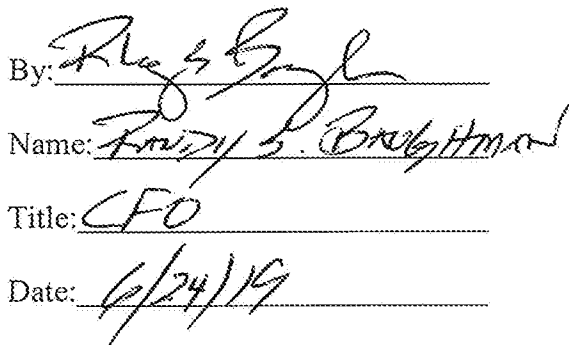 By:
Name: RANDY S. BAUGHMAN
Title: CFO
Date: 6/24/19